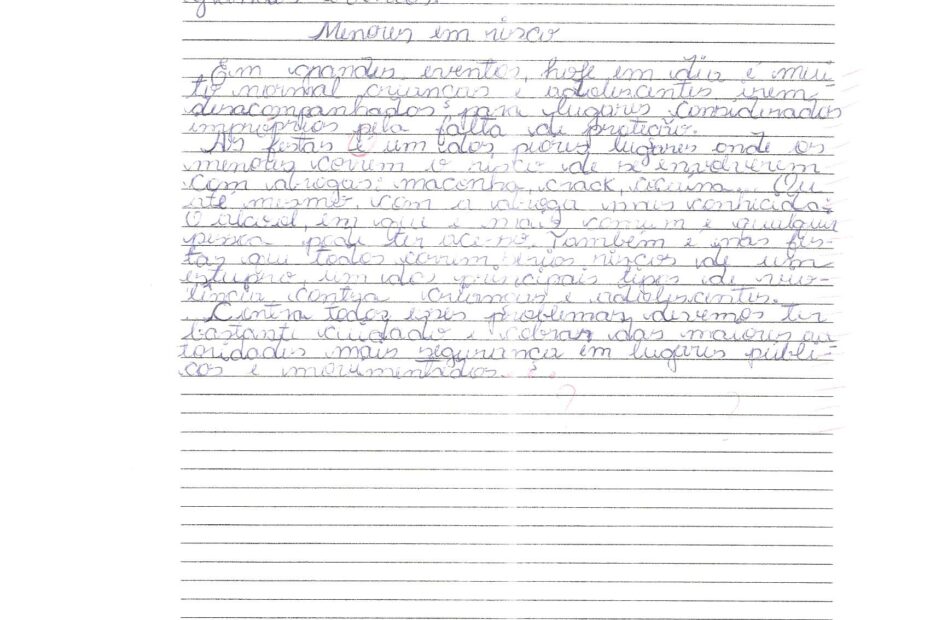 Menores em risco
Em grandes eventos, hoje em dia é mui
to normal crianças e adolescentes irem
desacompanhados para lugares considerados
impróprios pela falta de proteção.
As festas é um dos piores lugares onde os
menores correm o risco de se envolverem
com drogas: maconha, crack, cocaína... Ou
até mesmo com a droga mais conhecida:
O álcool, em que é mais comum e qualquer
pessoa pode ter acesso. Também é nas fes-
tas que todos correm sérios riscos de um
estupro, um dos principais tipos de vio-
lência contra crianças e adolescentes.
Contra todos esses problemas, devemos ter
bastante cuidado e cobrar das maiores au
toridades mais segurança em lugares públi-
cos e movimentados.